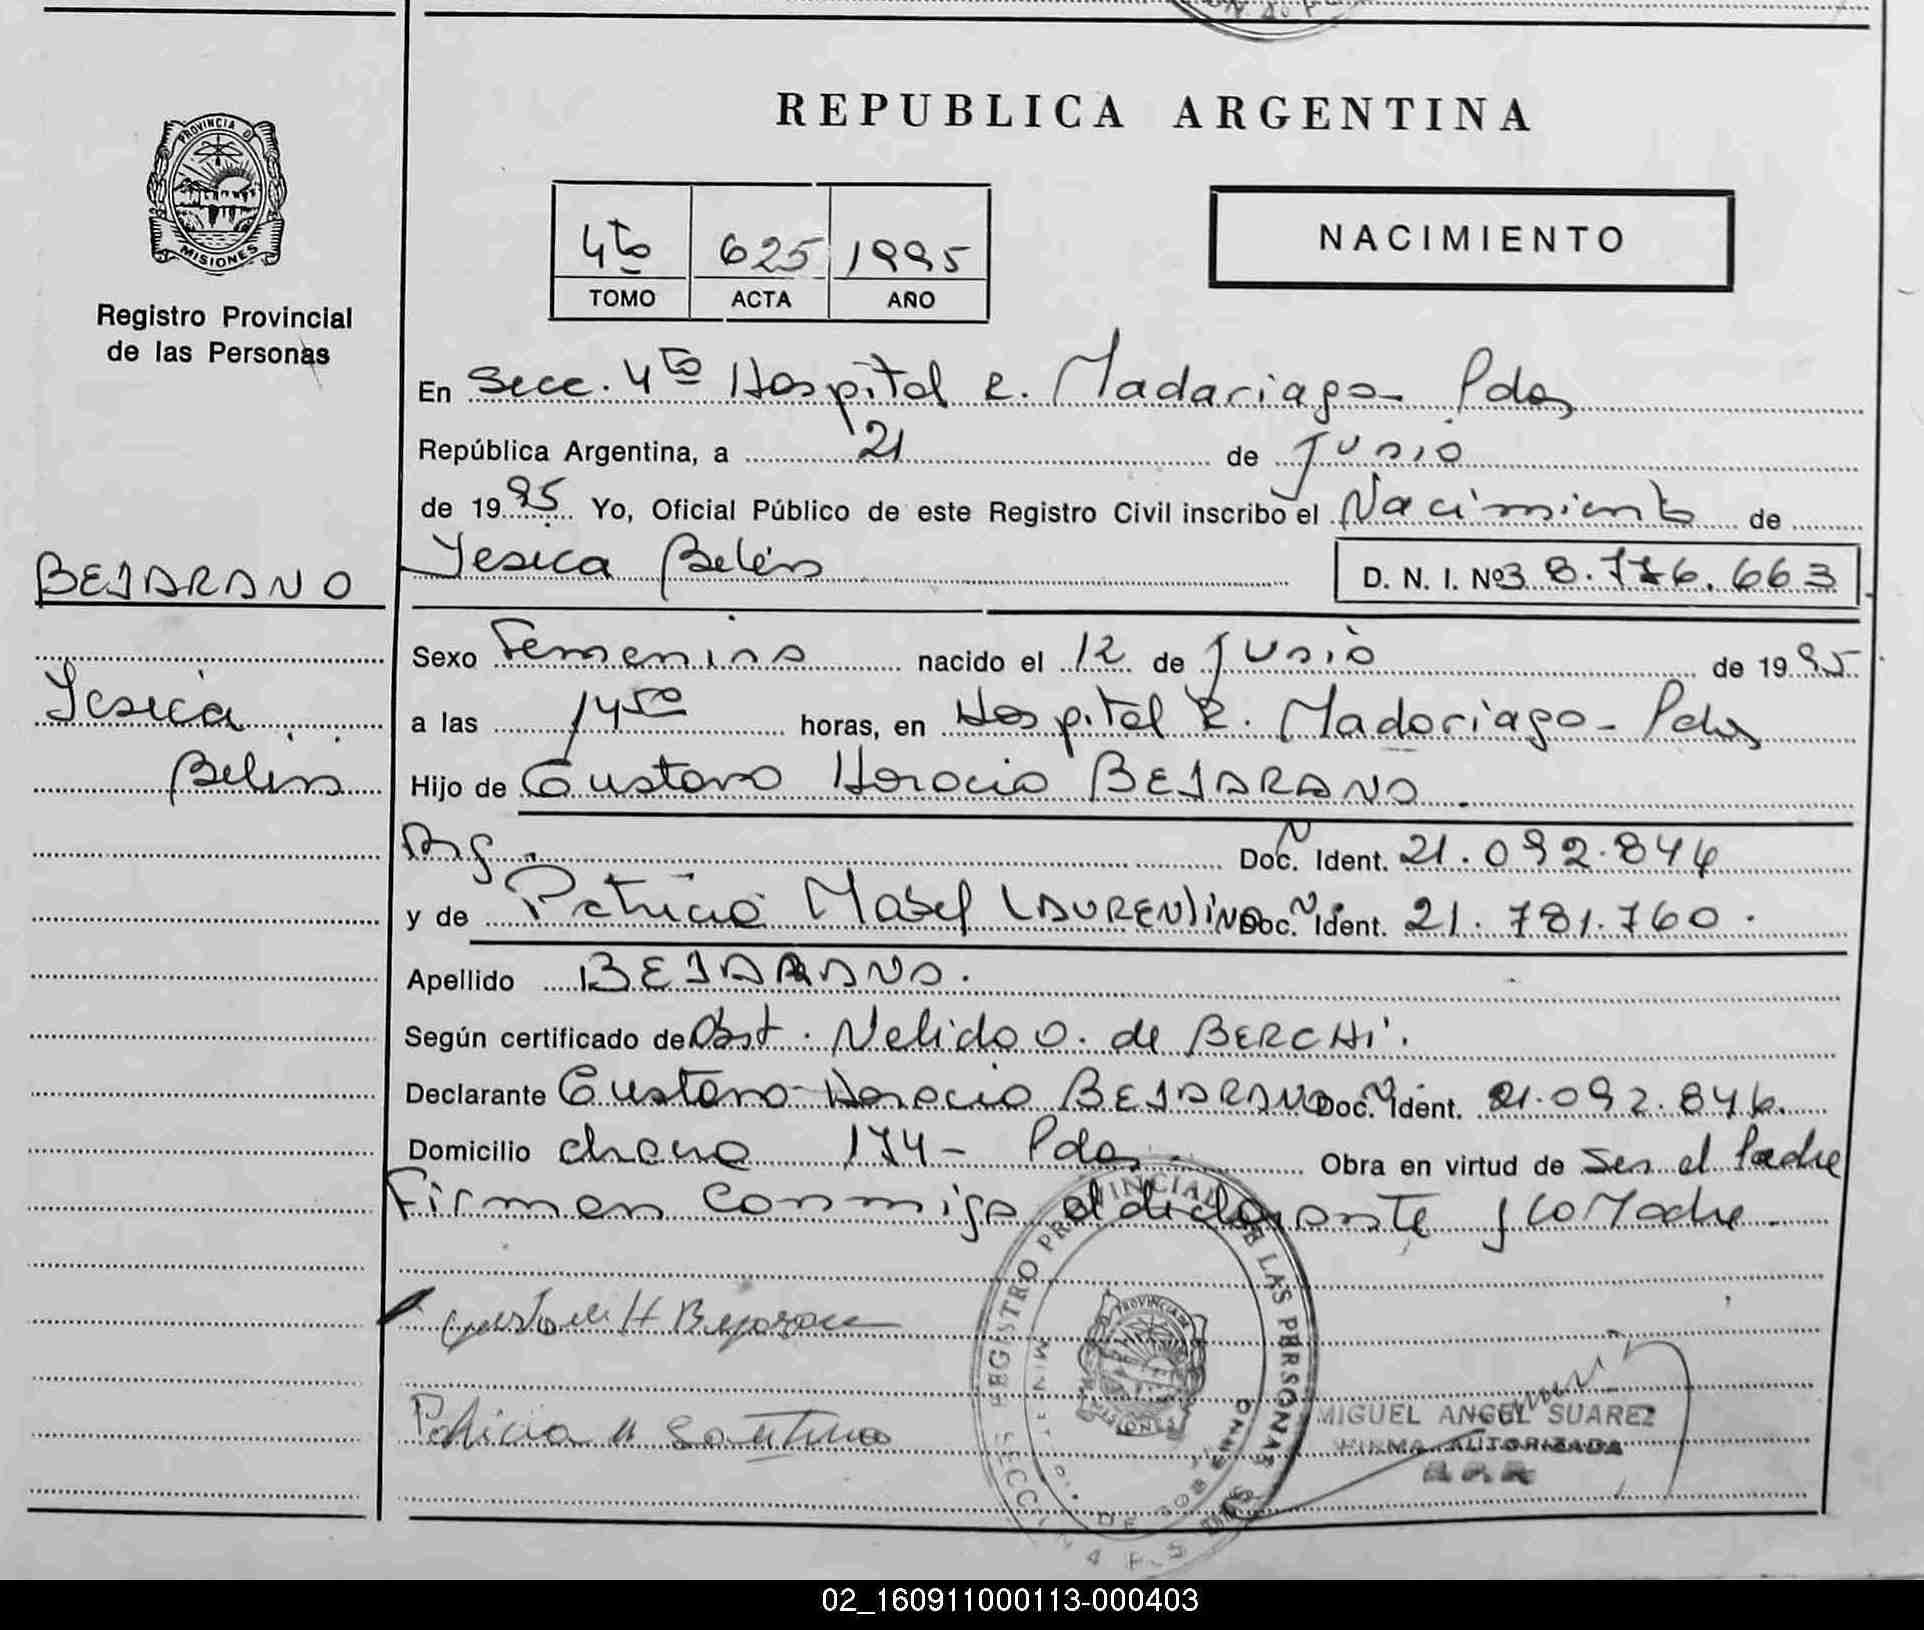 REPUBLICA ARGENTINA
PROVINCIA D
MISIONES
Registro Provincial
de las Personas
4to 625 1995
TOMO ACTA AÑO
NACIMIENTO
En Secc. 4ta Hospital R. Madariaga - Pdas
República Argentina, a 21 de Junio
de 1995 Yo, Oficial Público de este Registro Civil inscribo el Nacimiento de
BEJARANO
Yesica Belén
D. N. I. Nº 38.776.663
Sexo Femenino nacido el 12 de Junio de 1995
Yesica
Belén
a las 1450 horas, en Hospital R. Madariaga - Pdas
Hijo de Gustavo Horacio BEJARANO.
Arg. Doc. N Ident. 21.092.846
y de Patricia Mabel LAURENTINO Doc. N Ident. 21.781.760.
Apellido BEJARANO.
Según certificado de Obst. Nelida O. de BERCHI.
Declarante Gustavo Horacio BEJARANO Doc. N Ident. 21.092.846.
Domicilio chacra 174 - Pdas. Obra en virtud de ser el Padre
Firman conmigo el declarante y la Madre.
Gustavo H Bejarano
Patricia M
REGISTRO PROVINCIAL DE LAS PERSONAS
PROVINCIA DE
MISIONES
MIGUEL ANGEL SUAREZ
FIRMA AUTORIZADA
02_160911000113-000403